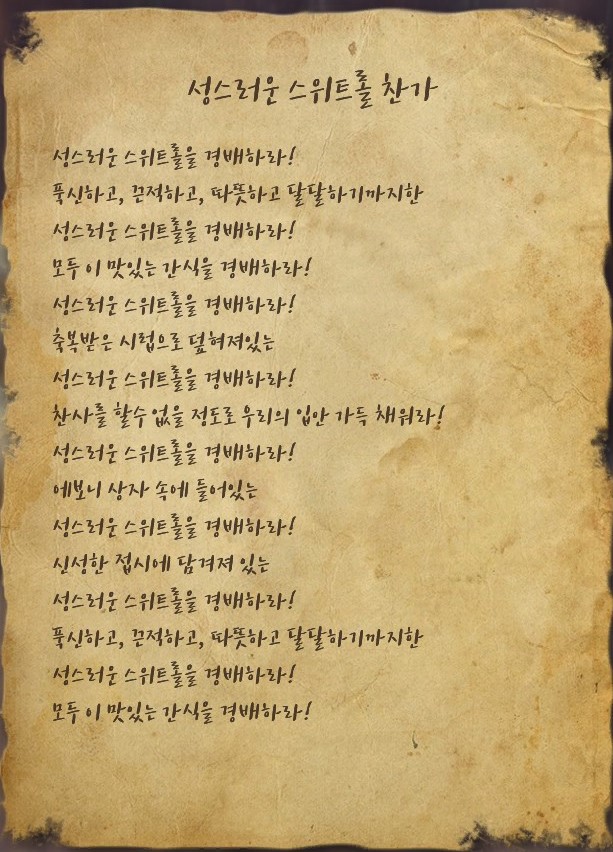 성스러운 스위트롤 찬가
성스러운 스위트롤을 경배하라!
푹신하고, 끈적하고, 따뜻하고 달달하기까지한
성스러운 스위트롤을 경배하라!
모두 이 맛있는 간식을 경배하라!
성스러운 스위트롤을 경배하라!
축복받은 시럽으로 덮혀져있는
성스러운 스위트롤을 경배하라!
찬사를 할수 없을 정도로 우리의 입안 가득 채워라!
성스러운 스위트롤을 경배하라!
에보니 상자 속에 들어있는
성스러운 스위트롤을 경배하라!
신성한 접시에 담겨져 있는
성스러운 스위트롤을 경배하라!
푹신하고, 끈적하고, 따뜻하고 달달하기까지한
성스러운 스위트롤을 경배하라!
모두 이 맛있는 간식을 경배하라!